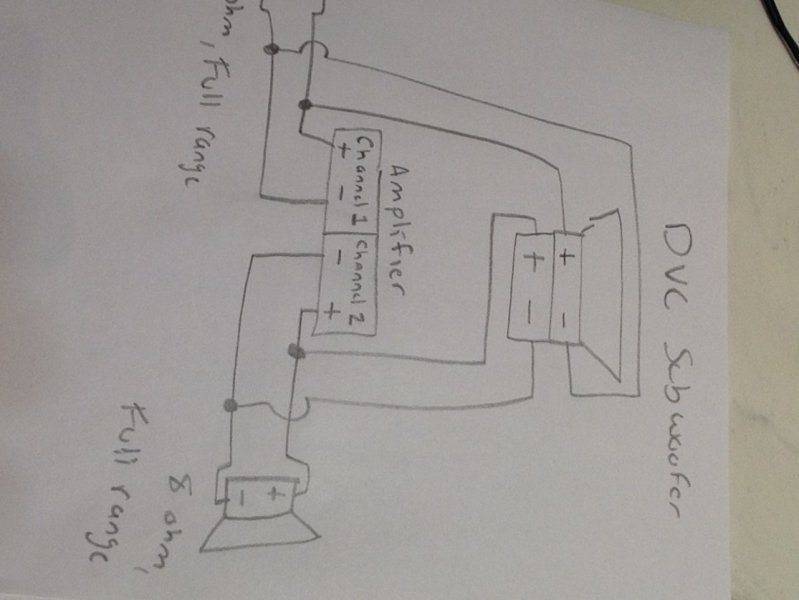 DVC Subwoofer
+ -
+ -
Amplifier
Channel 1 Channel 2
+ - - +
ohm, Full range
+
-
8 ohm,
Full range